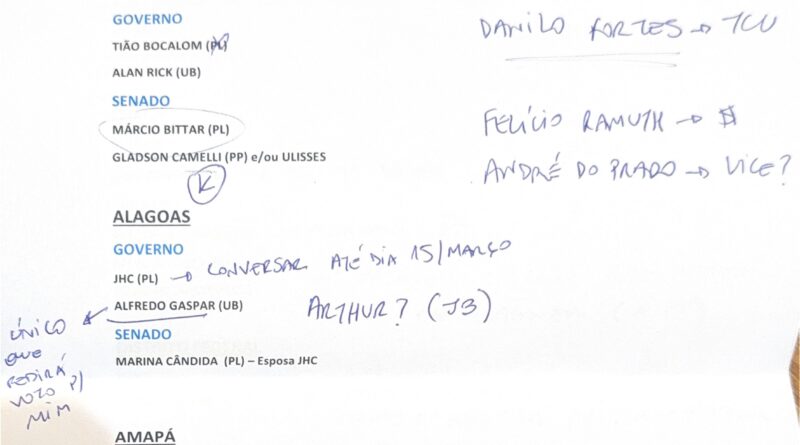 GOVERNO
TIÃO BOCALOM (PL)
ALAN RICK (UB)
SENADO
MÁRCIO BITTAR (PL)
GLADSON CAMELLI (PP) e/ou ULISSES
K
DANILO FORTES → TCU
FELÍCIO RAMUTH → $
ANDRÉ DO PRADO → VICE?
ALAGOAS
GOVERNO
JHC (PL) → CONVERSAR ATÉ DIA 15/MARÇO
ALFREDO GASPAR (UB)
ARTHUR? (JB)
ÚNICO
QUE
PEDIRÁ
VOTO P/
MIM
SENADO
MARINA CÂNDIDA (PL) – Esposa JHC
AMAPÁ